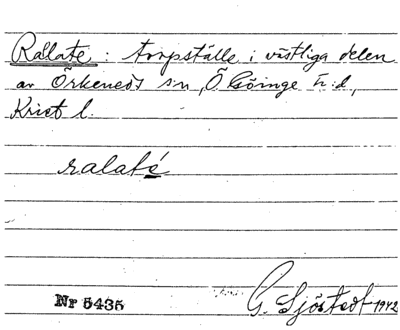 Rallate : torpställe i västliga delen
av Örkeneds sn, Ö. Göinge h:d,
Krist l.
ralaté
Nr 5435
G. Sjöstedt 1942